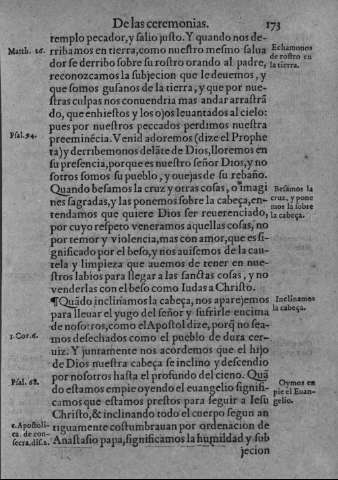 De las ceremonias. 173
templo pecador, y salio justo. Y quando nos de-
Matth. 26. rribamos en tierra, como nuestro mesmo salua
dor se derribo sobre su rostro orando al padre,
Echamonos de rostro en la tierra.
reconozcamos la subjecion que le deuemos, y
que somos gusanos de la tierra, y que por nue-
stras culpas nos conuendria mas andar arrastrã
do, que enhiestos y los ojos leuantados al cielo:
pues por nuestros peccados perdimos nuestra
Psal. 94. preeminẽcia. Venid adoremos (dize el Prophe
ta) y derribemonos delãte de Dios, lloremos en
su presencia, porque es nuestro señor Dios, y no
sotros somos su pueblo, y ouejas de su rebaño.
Quando besamos la cruz y otras cosas, o imagi
nes sagradas, y las ponemos sobre la cabeça, en-
Besamos la cruz, y pone mos la sobre la cabeça.
tendamos que quiere Dios ser reuerenciado,
por cuyo respeto veneramos aquellas cosas, no
por temor y violencia, mas con amor, que es si-
gnificado por el beso, y nos auisemos de la cau-
tela y limpieza que auemos de tener en nue-
stros labios para llegar a las sanctas cosas, y no
venderlas con el beso como Iudas a Christo.
¶Quãdo inclinamos la cabeça, nos aparejemos
Inclinamos la cabeça.
para lleuar el yugo del señor y sufrirle encima
de nosotros, como el Apostol dize, porq̃ no sea-
1. Cor. 6. mos desechados como el pueblo de dura cer-
uiz. Y juntamente nos acordemos que el hijo
de Dios nuestra cabeça se inclino y descendio
por nosotros hasta el profundo del cieno. Quã
Psal. 68. do estamos en pie oyendo el euangelio signifi-
Oymos en pie el Euan- gelio.
camos que estamos prestos para seguir a Iesu
Christo, & inclinando todo el cuerpo segun an
tiguamente costumbrauan por ordenacion de
c. Apostoli- ca. de con- secra. dist. 2.
Anastasio papa, significamos la humildad y sub
jecion